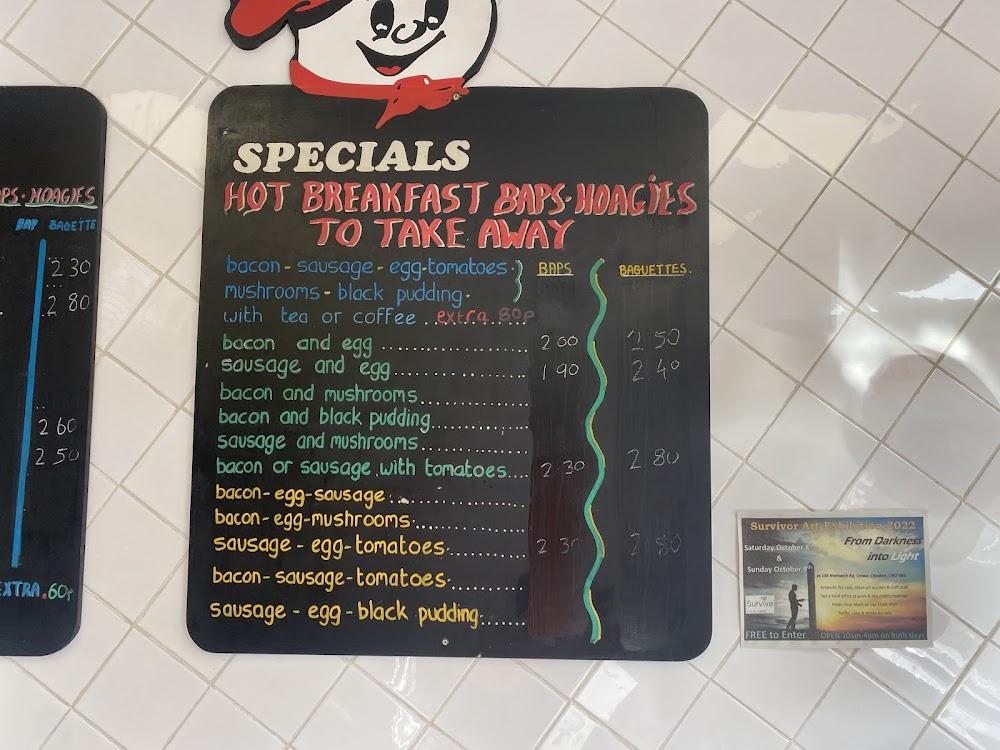 PS. HOAGIES
BAP BAGETTE
2 30
2 80
2 60
2 50
EXTRA .60p
SPECIALS
HOT BREAKFAST BAPS.HOAGIES
TO TAKE AWAY
bacon - sausage - egg-tomatoes. BAPS BAGUETTES.
mushrooms - black pudding.
with tea or coffee ... extra 80p
bacon and egg .................... 2 00 2 50
sausage and egg................... 1 90 2 40
bacon and mushrooms...............
bacon and black pudding...............
sausage and mushrooms...............
bacon or sausage with tomatoes.... 2 30 2 80
bacon-egg-sausage ..................
bacon-egg-mushrooms...............
sausage - egg-tomatoes........... 2 30 2 80
bacon-sausage-tomatoes...........
sausage - egg - black pudding......
Survivor Art Exhibition 2022
Saturday October 8
&
Sunday October 9th
From Darkness
into Light
at 116 Nantwich Rd, Crewe, Cheshire,
Survive
FREE to Enter
OPEN 10am-4pm on both days